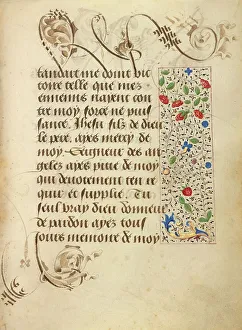 tandart me doint vic
toire telle que mes
ennemis naient con
tre moy force ne puis
sance. Ihesu filz de dieu
le pere, ayes mercy de
moy. Seigneur des an
gelez ayes pitie de moy
qui deuotement ten re
quier et supplie. Tu
seul vray dieu donneur
de pardon ayez tous
iours memoire de moy